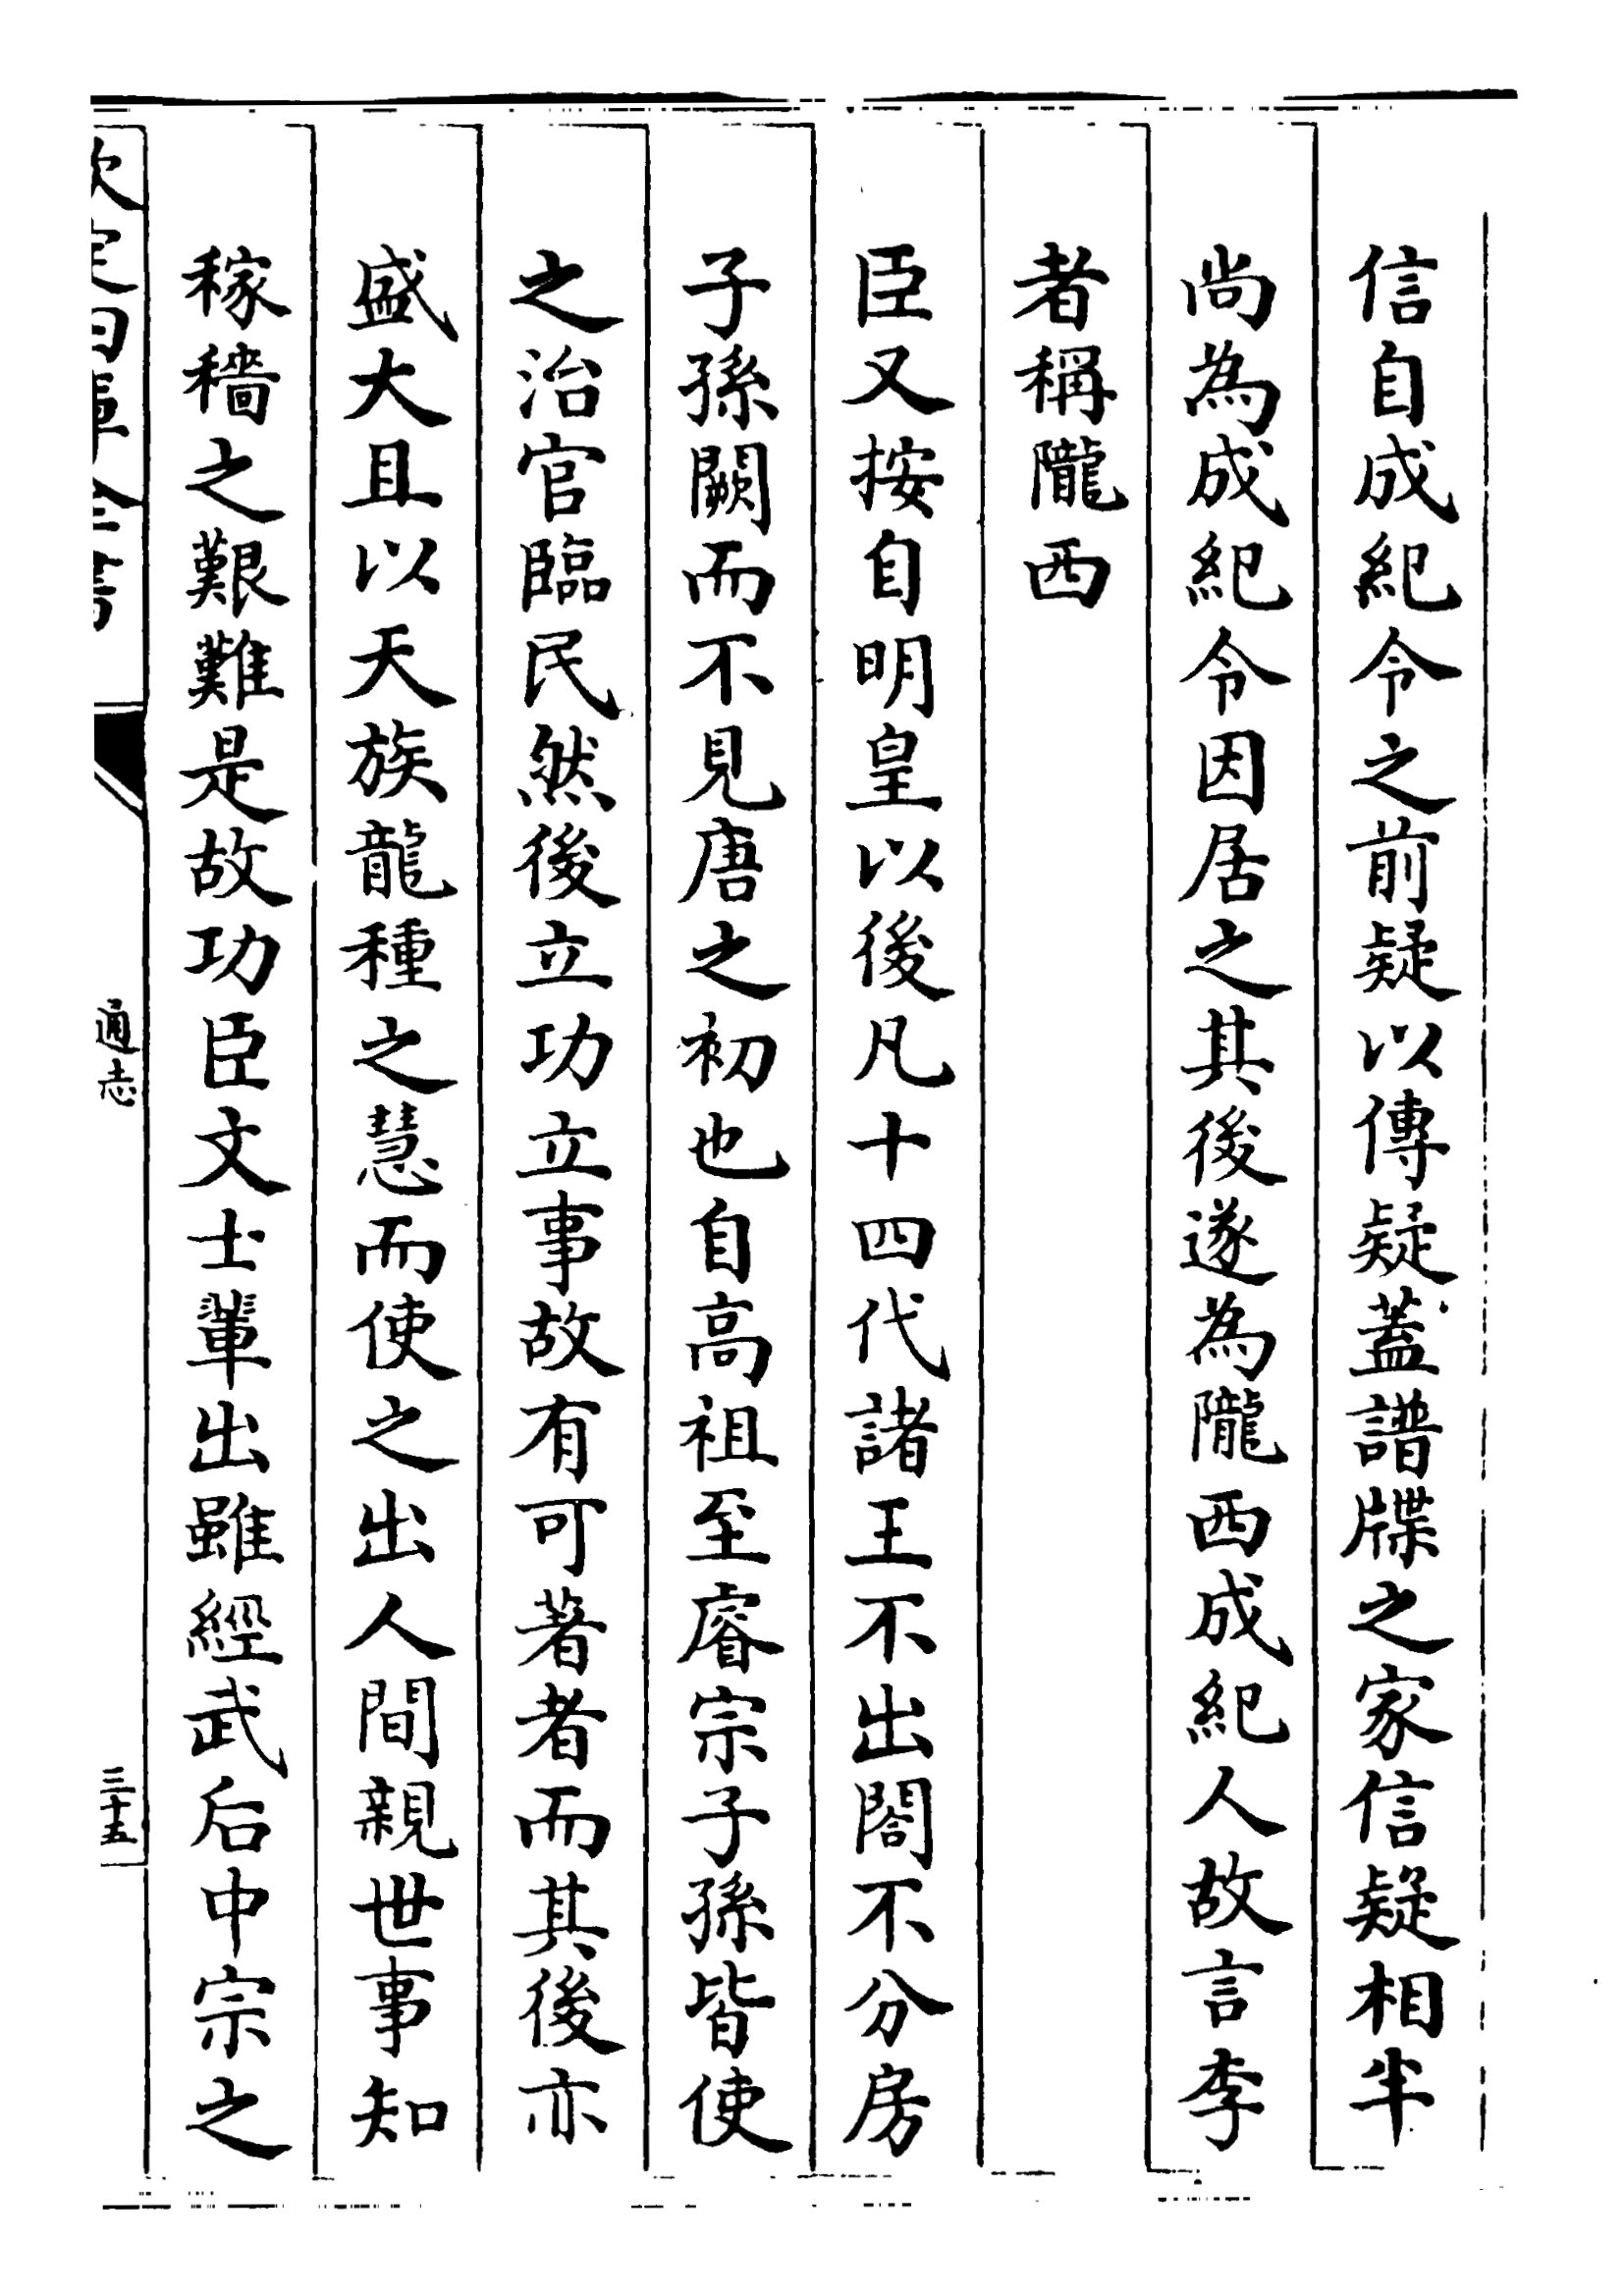 信自成紀令之前疑以傳疑蓋譜牒之家信疑相半
尚為成紀令因居之其後遂為隴西成紀人故言李
者稱隴西
臣又按自明皇以後凡十四代諸王不出閤不分房
子孫闕而不見唐之初也自高祖至睿宗子孫皆使
之治官臨民然後立功立事故有可著者而其後亦
盛大且以天族龍種之慧而使之出人間親世事知
稼穡之艱難是故功臣文士輩出雖經武后中宗之
欽定四庫全書
通志
三十五